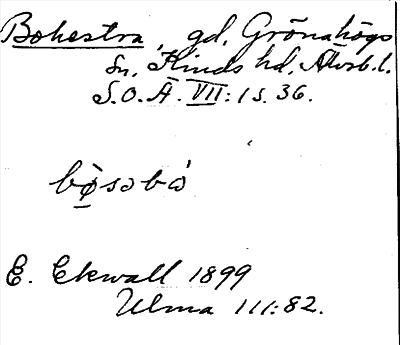 Bohestra, gd, Grönahögs
sn, Kinds hd, Älvsb. l.
S.O.Ä. VII: 1 s. 36.
bø̀səbó
E. Ekwall 1899
Ulma 111:82.